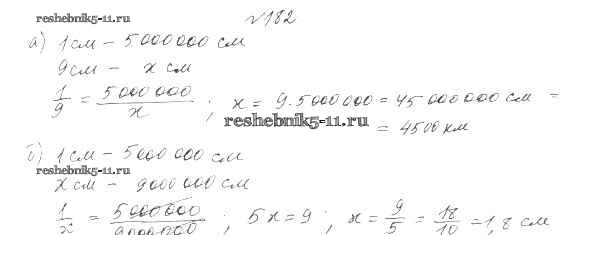 reshebnik5-11.ru
№182
а) 1 см – 5 000 000 см
9 см – x см
1/9 = 5 000 000/x ; x = 9·5000000 = 45 000 000 см =
reshebnik5-11.ru
= 4500 км
б) 1 см – 5000 000 см
reshebnik5-11.ru
x см – 9000 000 см
1/x = 5 000 000/9 000 000 ; 5x = 9 ; x = 9/5 = 18/10 = 1,8 см